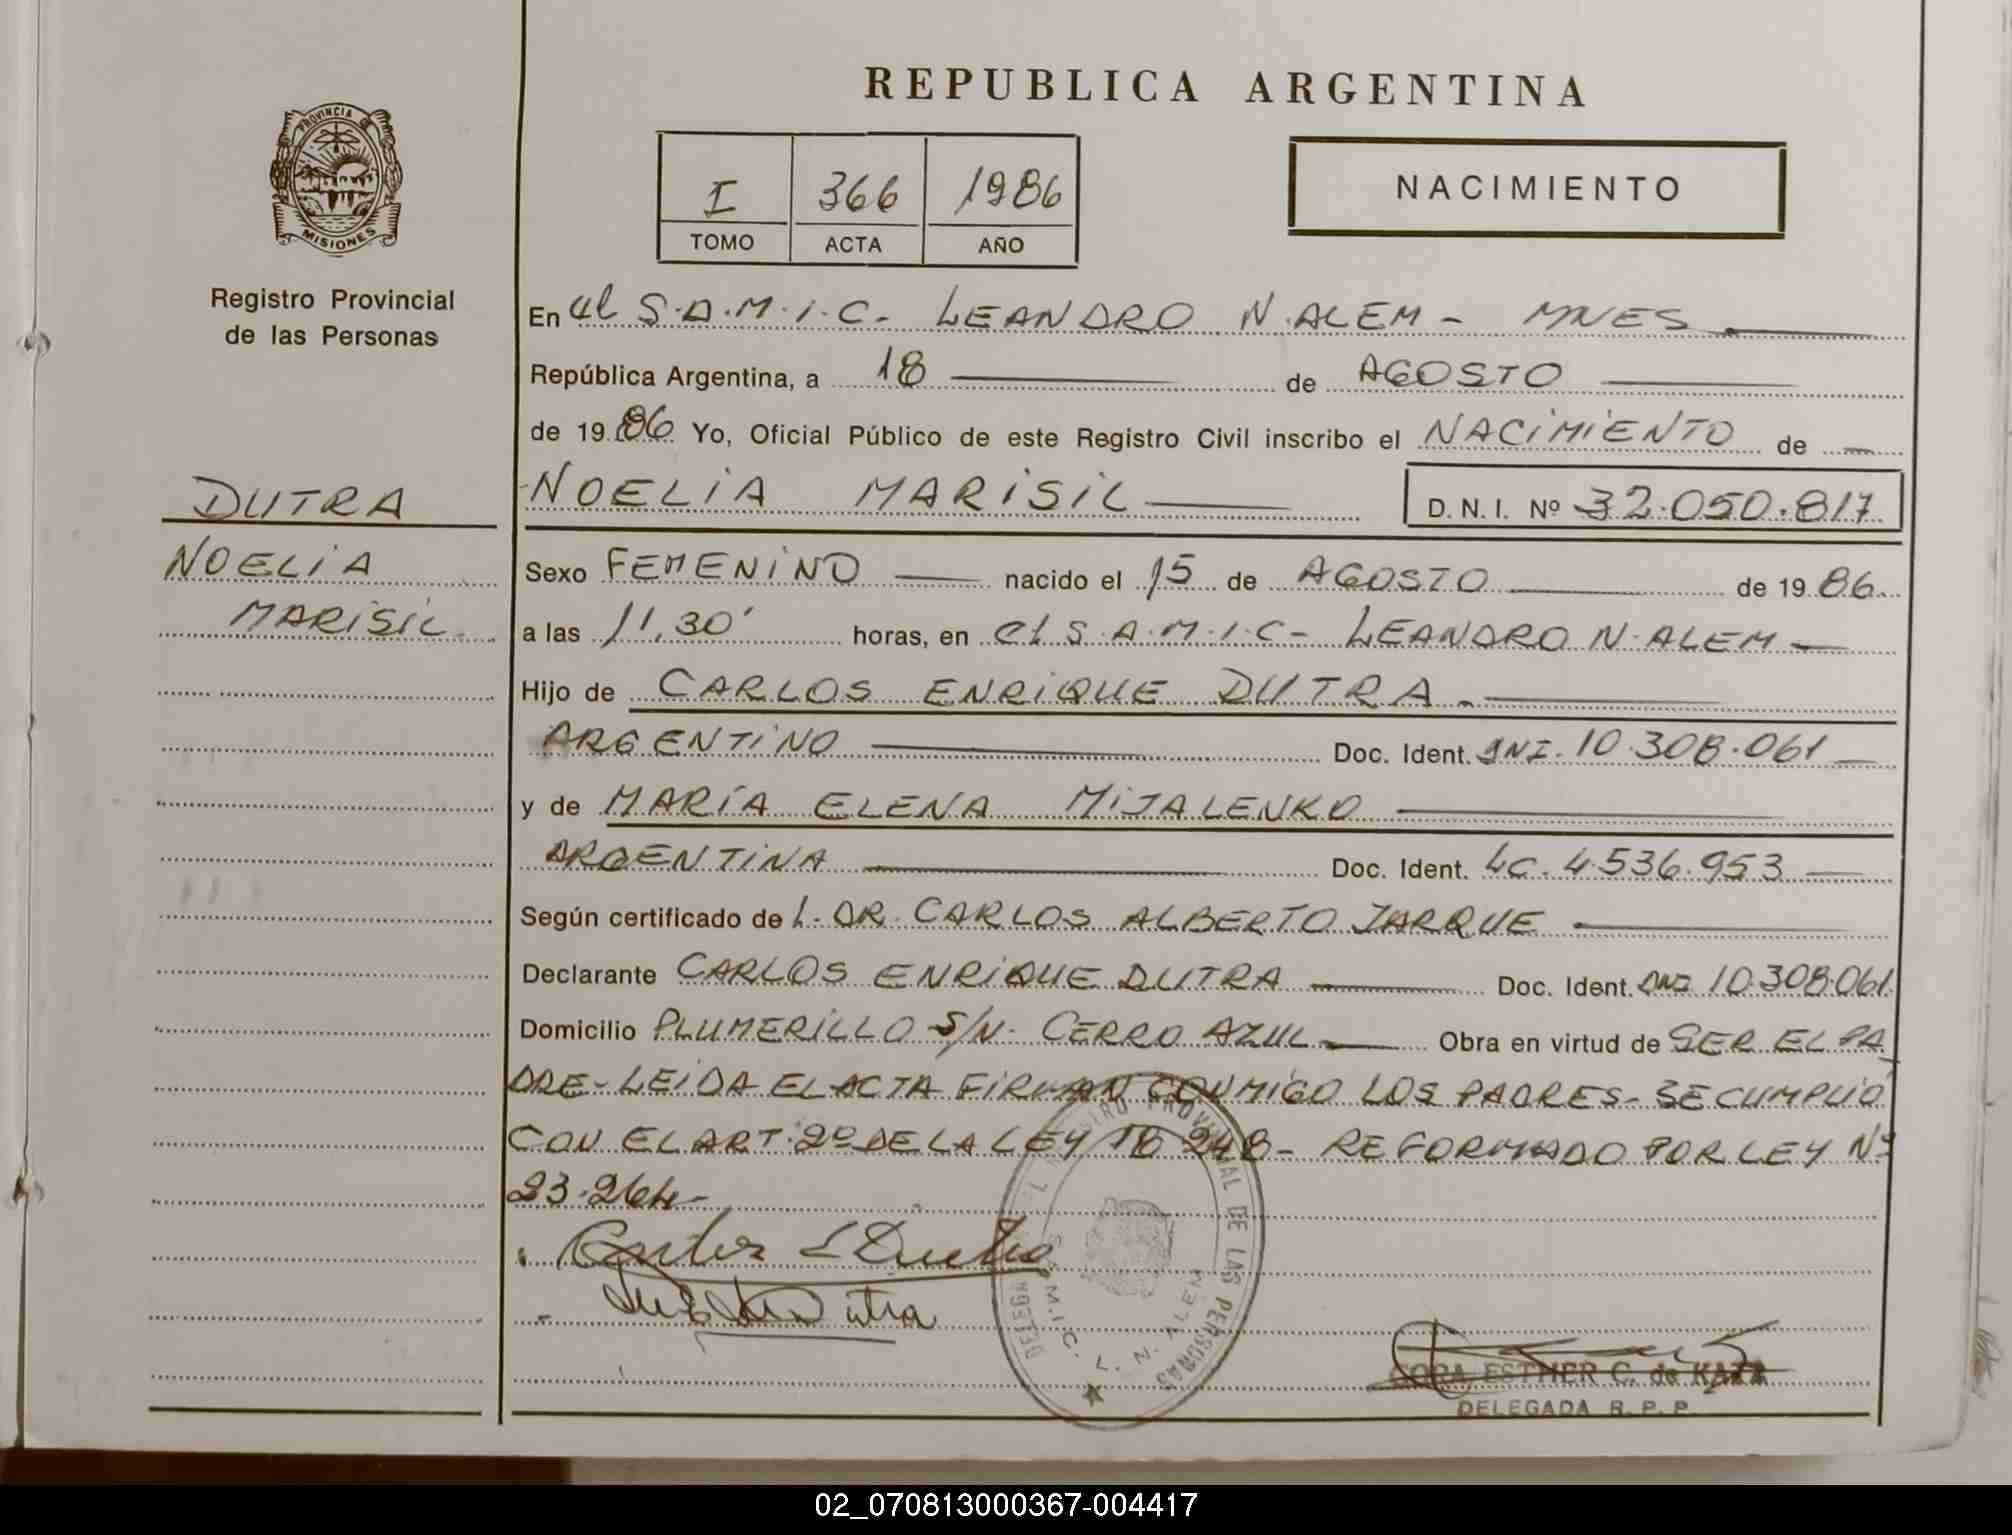 REPUBLICA ARGENTINA
PROVINCIA DE
MISIONES
Registro Provincial
de las Personas
I 366 1986
TOMO ACTA AÑO
NACIMIENTO
En el S.A.M.I.C. LEANDRO N. ALEM - MNES
República Argentina, a 18 de AGOSTO
de 1986 Yo, Oficial Público de este Registro Civil inscribo el NACIMIENTO de
NOELIA MARISIL
D.N.I. Nº 32.050.817
DUTRA
NOELIA
MARISIL
Sexo FEMENINO nacido el 15 de AGOSTO de 1986
a las 11,30' horas, en el S.A.M.I.C- LEANDRO N. ALEM
Hijo de CARLOS ENRIQUE DUTRA
ARGENTINO Doc. Ident. DNI. 10.308.061
y de MARÍA ELENA MIJALENKO
ARGENTINA Doc. Ident. LC. 4.536.953
Según certificado de L. DR. CARLOS ALBERTO JARQUE
Declarante CARLOS ENRIQUE DUTRA Doc. Ident. DNI 10.308.061
Domicilio PLUMERILLO S/N. CERRO AZUL Obra en virtud de SER EL PA
DRE- LEIDA EL ACTA FIRMAN CONMIGO LOS PADRES- SE CUMPLIÓ
CON EL ART. 2º DE LA LEY 18 248- REFORMADO POR LEY Nº
23.264-
Carlos E Dutra
Dutra
REGISTRO PROVINCIAL DE LAS PERSONAS
S.A.M.I.C. L. N. ALEM
CORA ESTHER C. de
DELEGADA R. P. P.
02_070813000367-004417